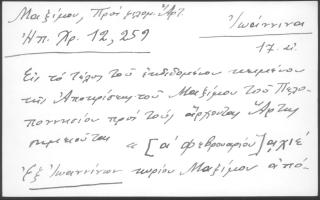 Μαξίμου, Πρός γελομ. Ἄρτ.
Ἠπ. Χρ. 12, 259
Ἰωάννινα
17. αἰ.
Εἰς τό τέλος τοῦ ἐκδιδομένου κειμένου
τῆς Ἀποκρίσεως τοῦ Μαξίμου τοῦ Πελο-
ποννησίου πρός τούς ἄρχοντας Ἄρτης
σημειοῦται « [αʹ φεβρουαρίου] ͵αχιεʹ
Ἐξ Ἰωαννίνων κυρίου Μαξίμου ἀπό-